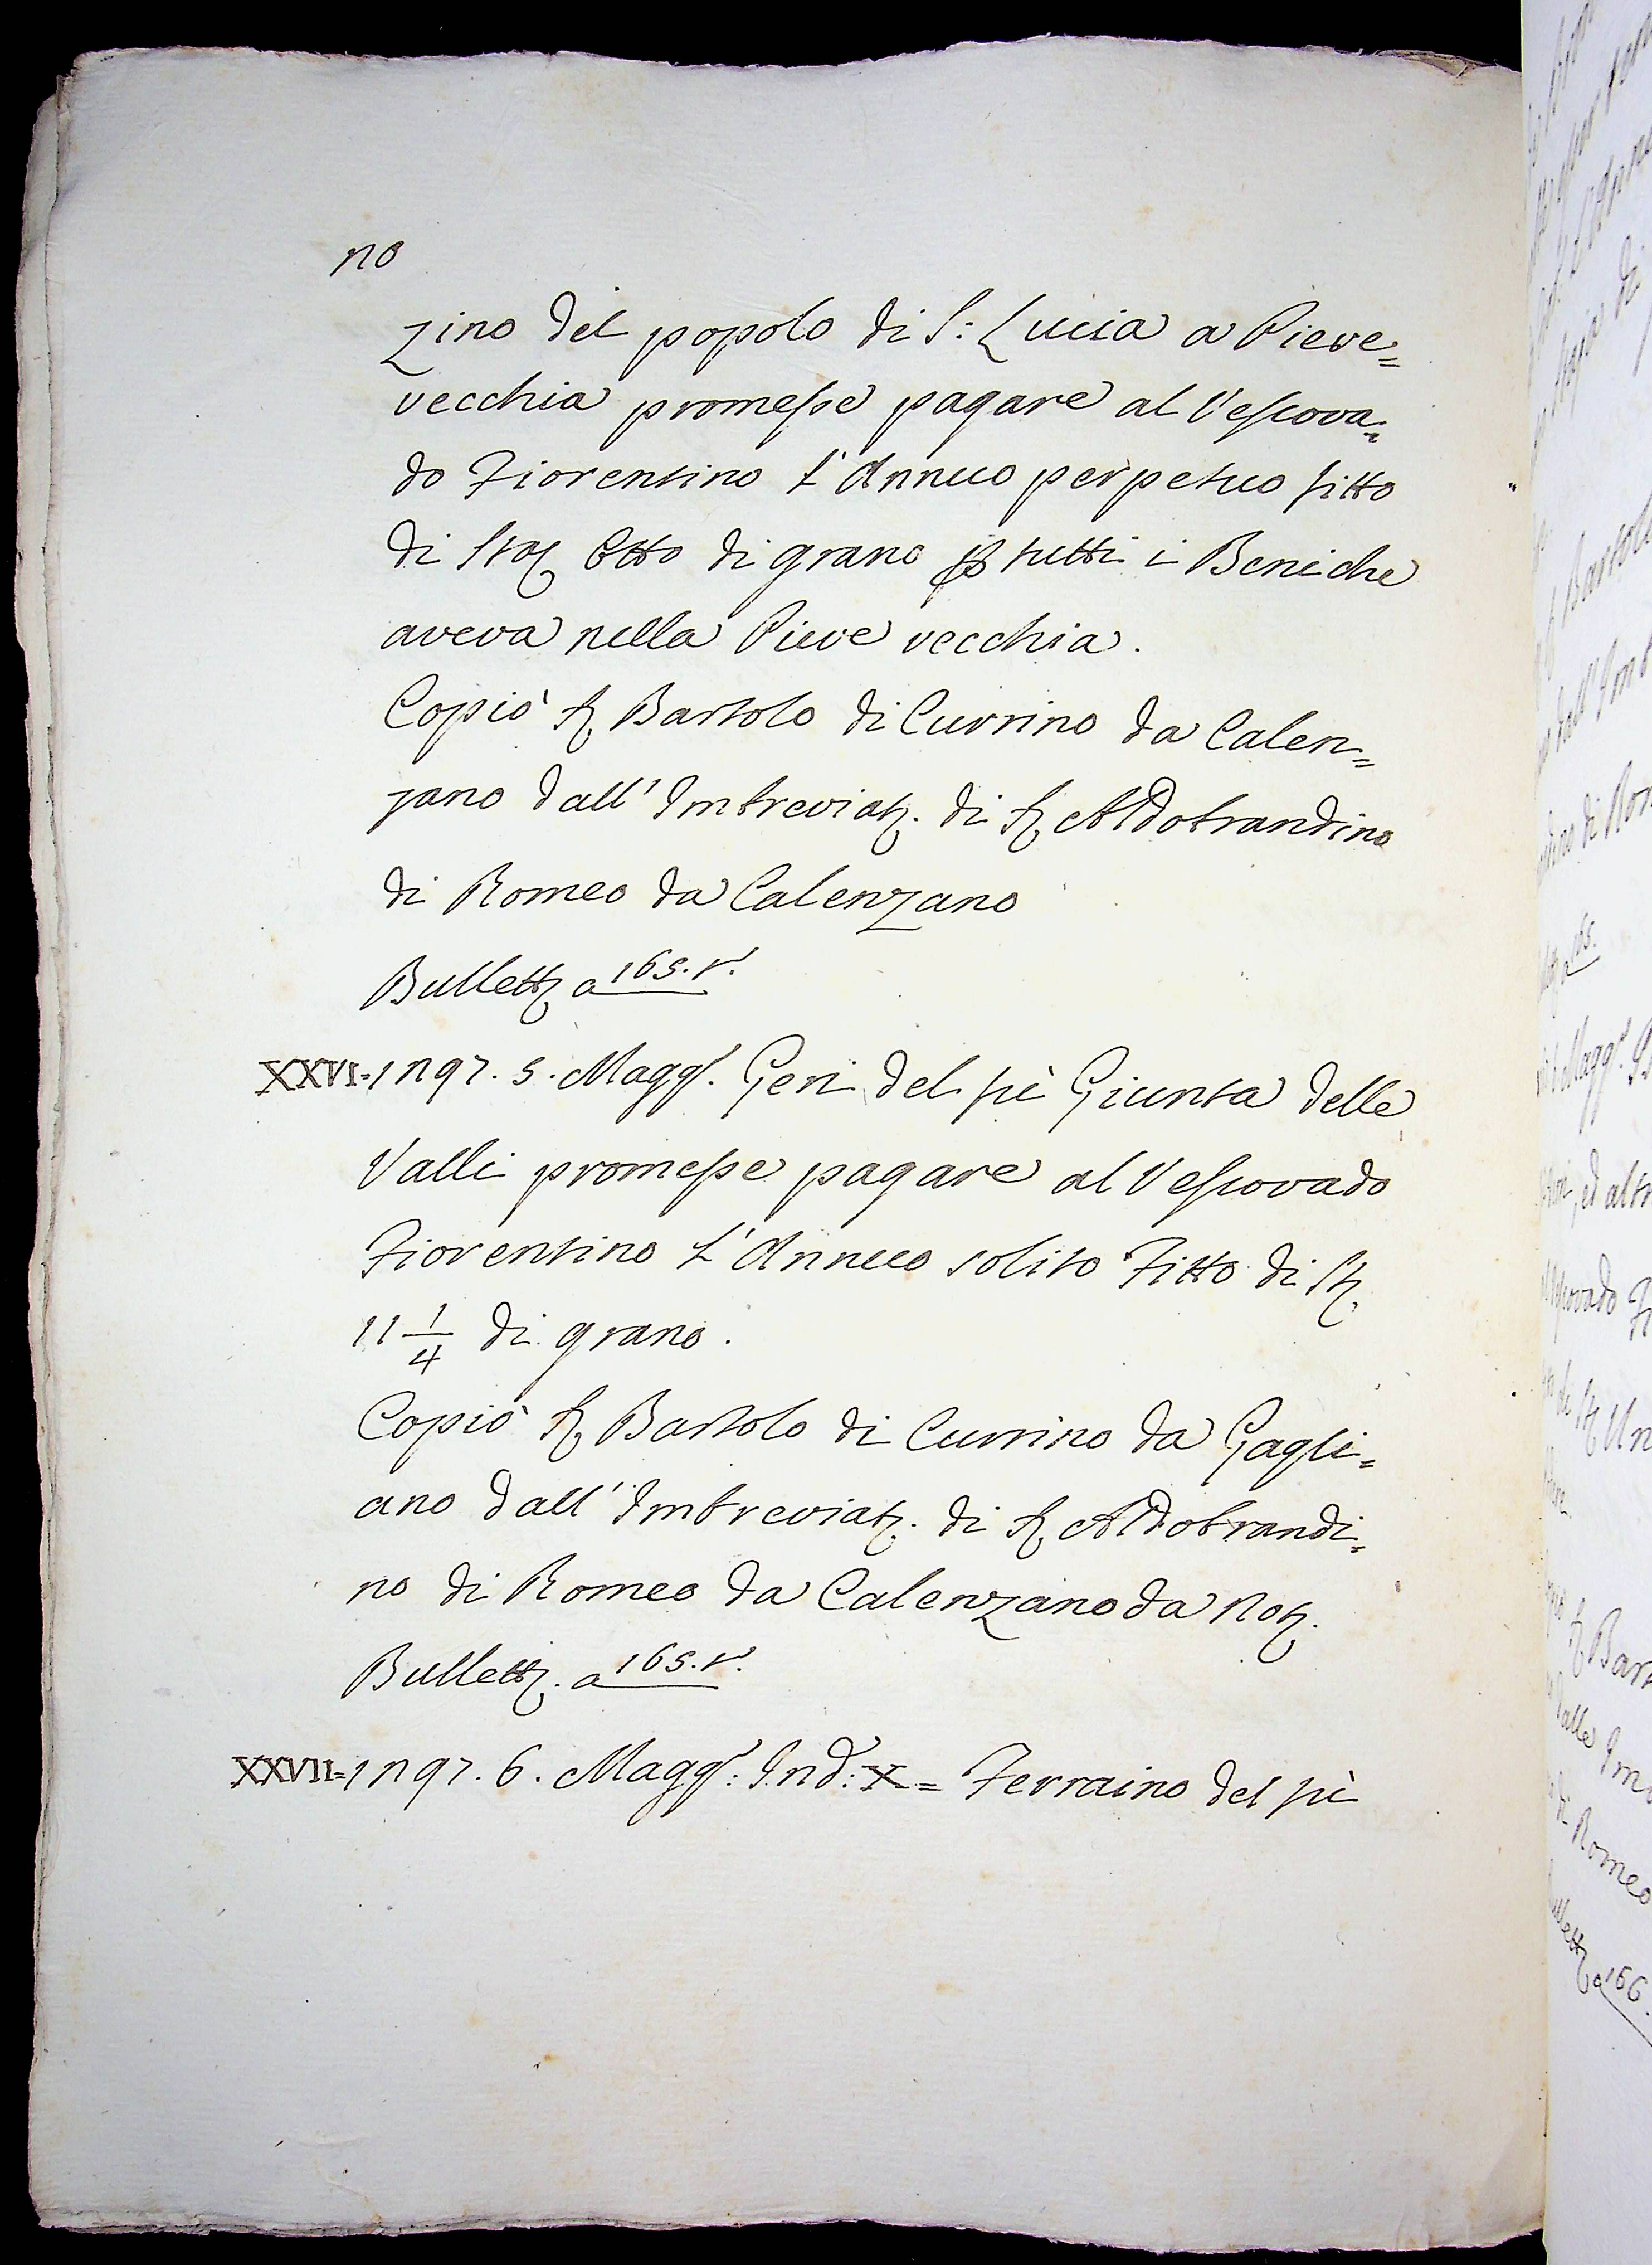 no
zino del popolo di S: Lucia a Pieve=
vecchia promesse pagare al Vescova=
do Fiorentino l'Annuo perpetuo fitto
di Staj Otto di grano p tutti i Beni che
aveva nella Pieve vecchia.
Copiò S Bartolo di Currino da Calen=
zano dall'Imbreviat. di S Aldobrandino
di Romeo da Calenzano
Bullett a 165. v.
XXVI = 1297. 5. Magg. Geri del fù Giunta delle
Valli promesse pagare al Vescovado
Fiorentino l'Annuo solito Fitto di St.
11 1/4 di grano.
Copiò S Bartolo di Currino da Gagli=
ano dall'Imbreviat. di S Aldobrandi=
no di Romeo da Calenzano da Not.
Bullett. a 165. v.
XXVII = 1297. 6. Magg: Ind: X = Ferraino del fù